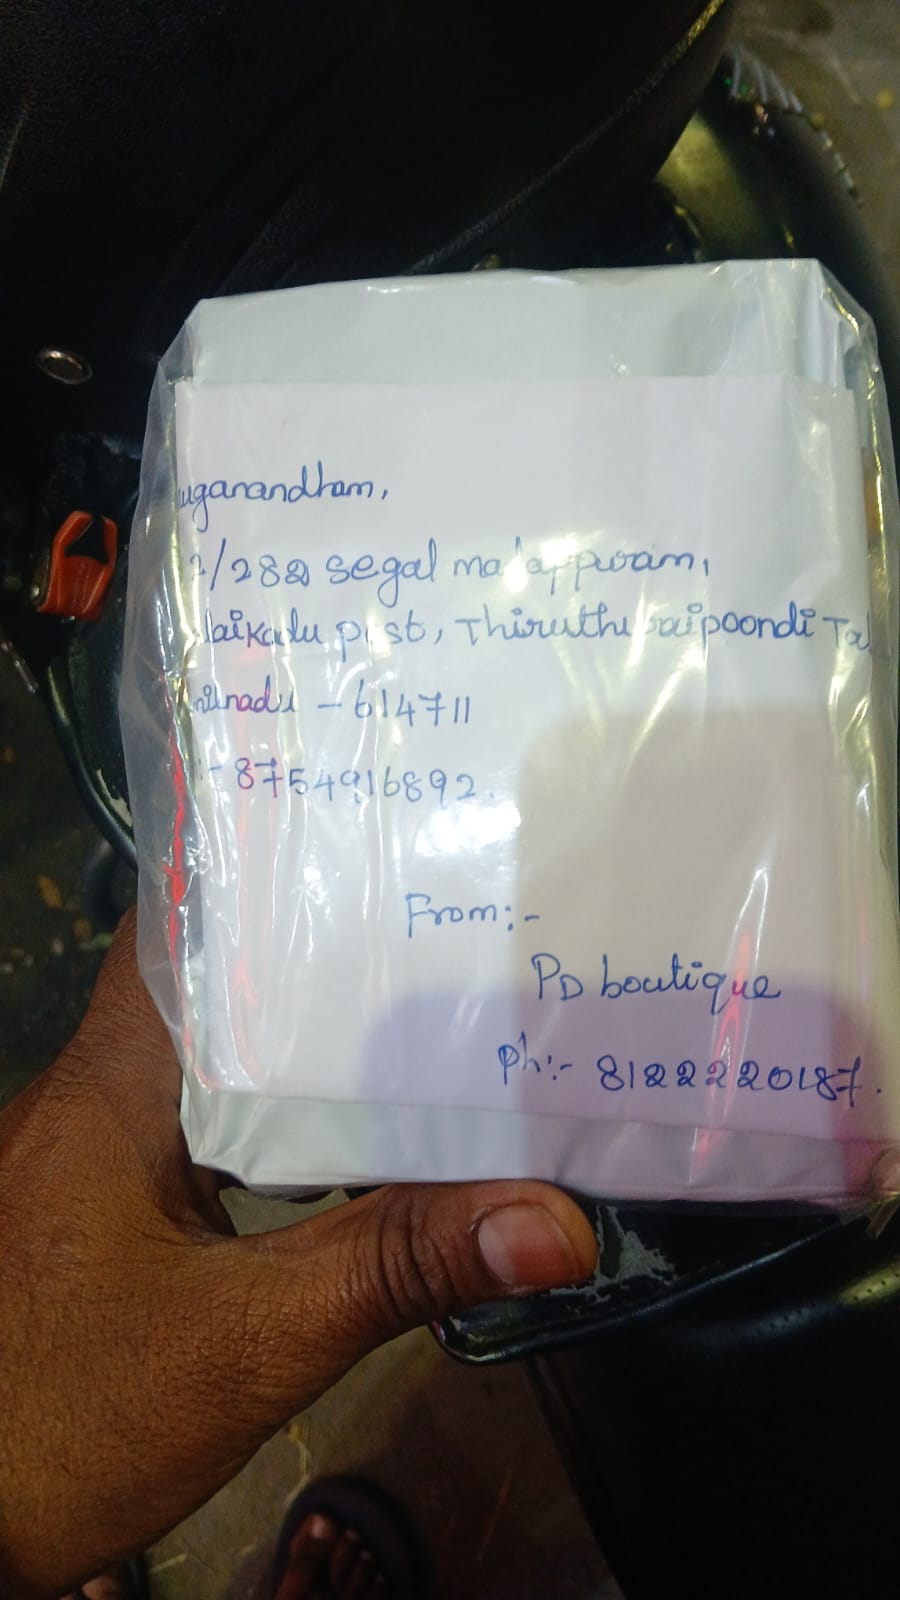 uganandham,
2/282 segal madappuram,
laikadu post, Thiruthuraipoondi Tal
milnadu - 614711
:- 8754916892.
From:-
PD boutique
Ph:- 8122220187.